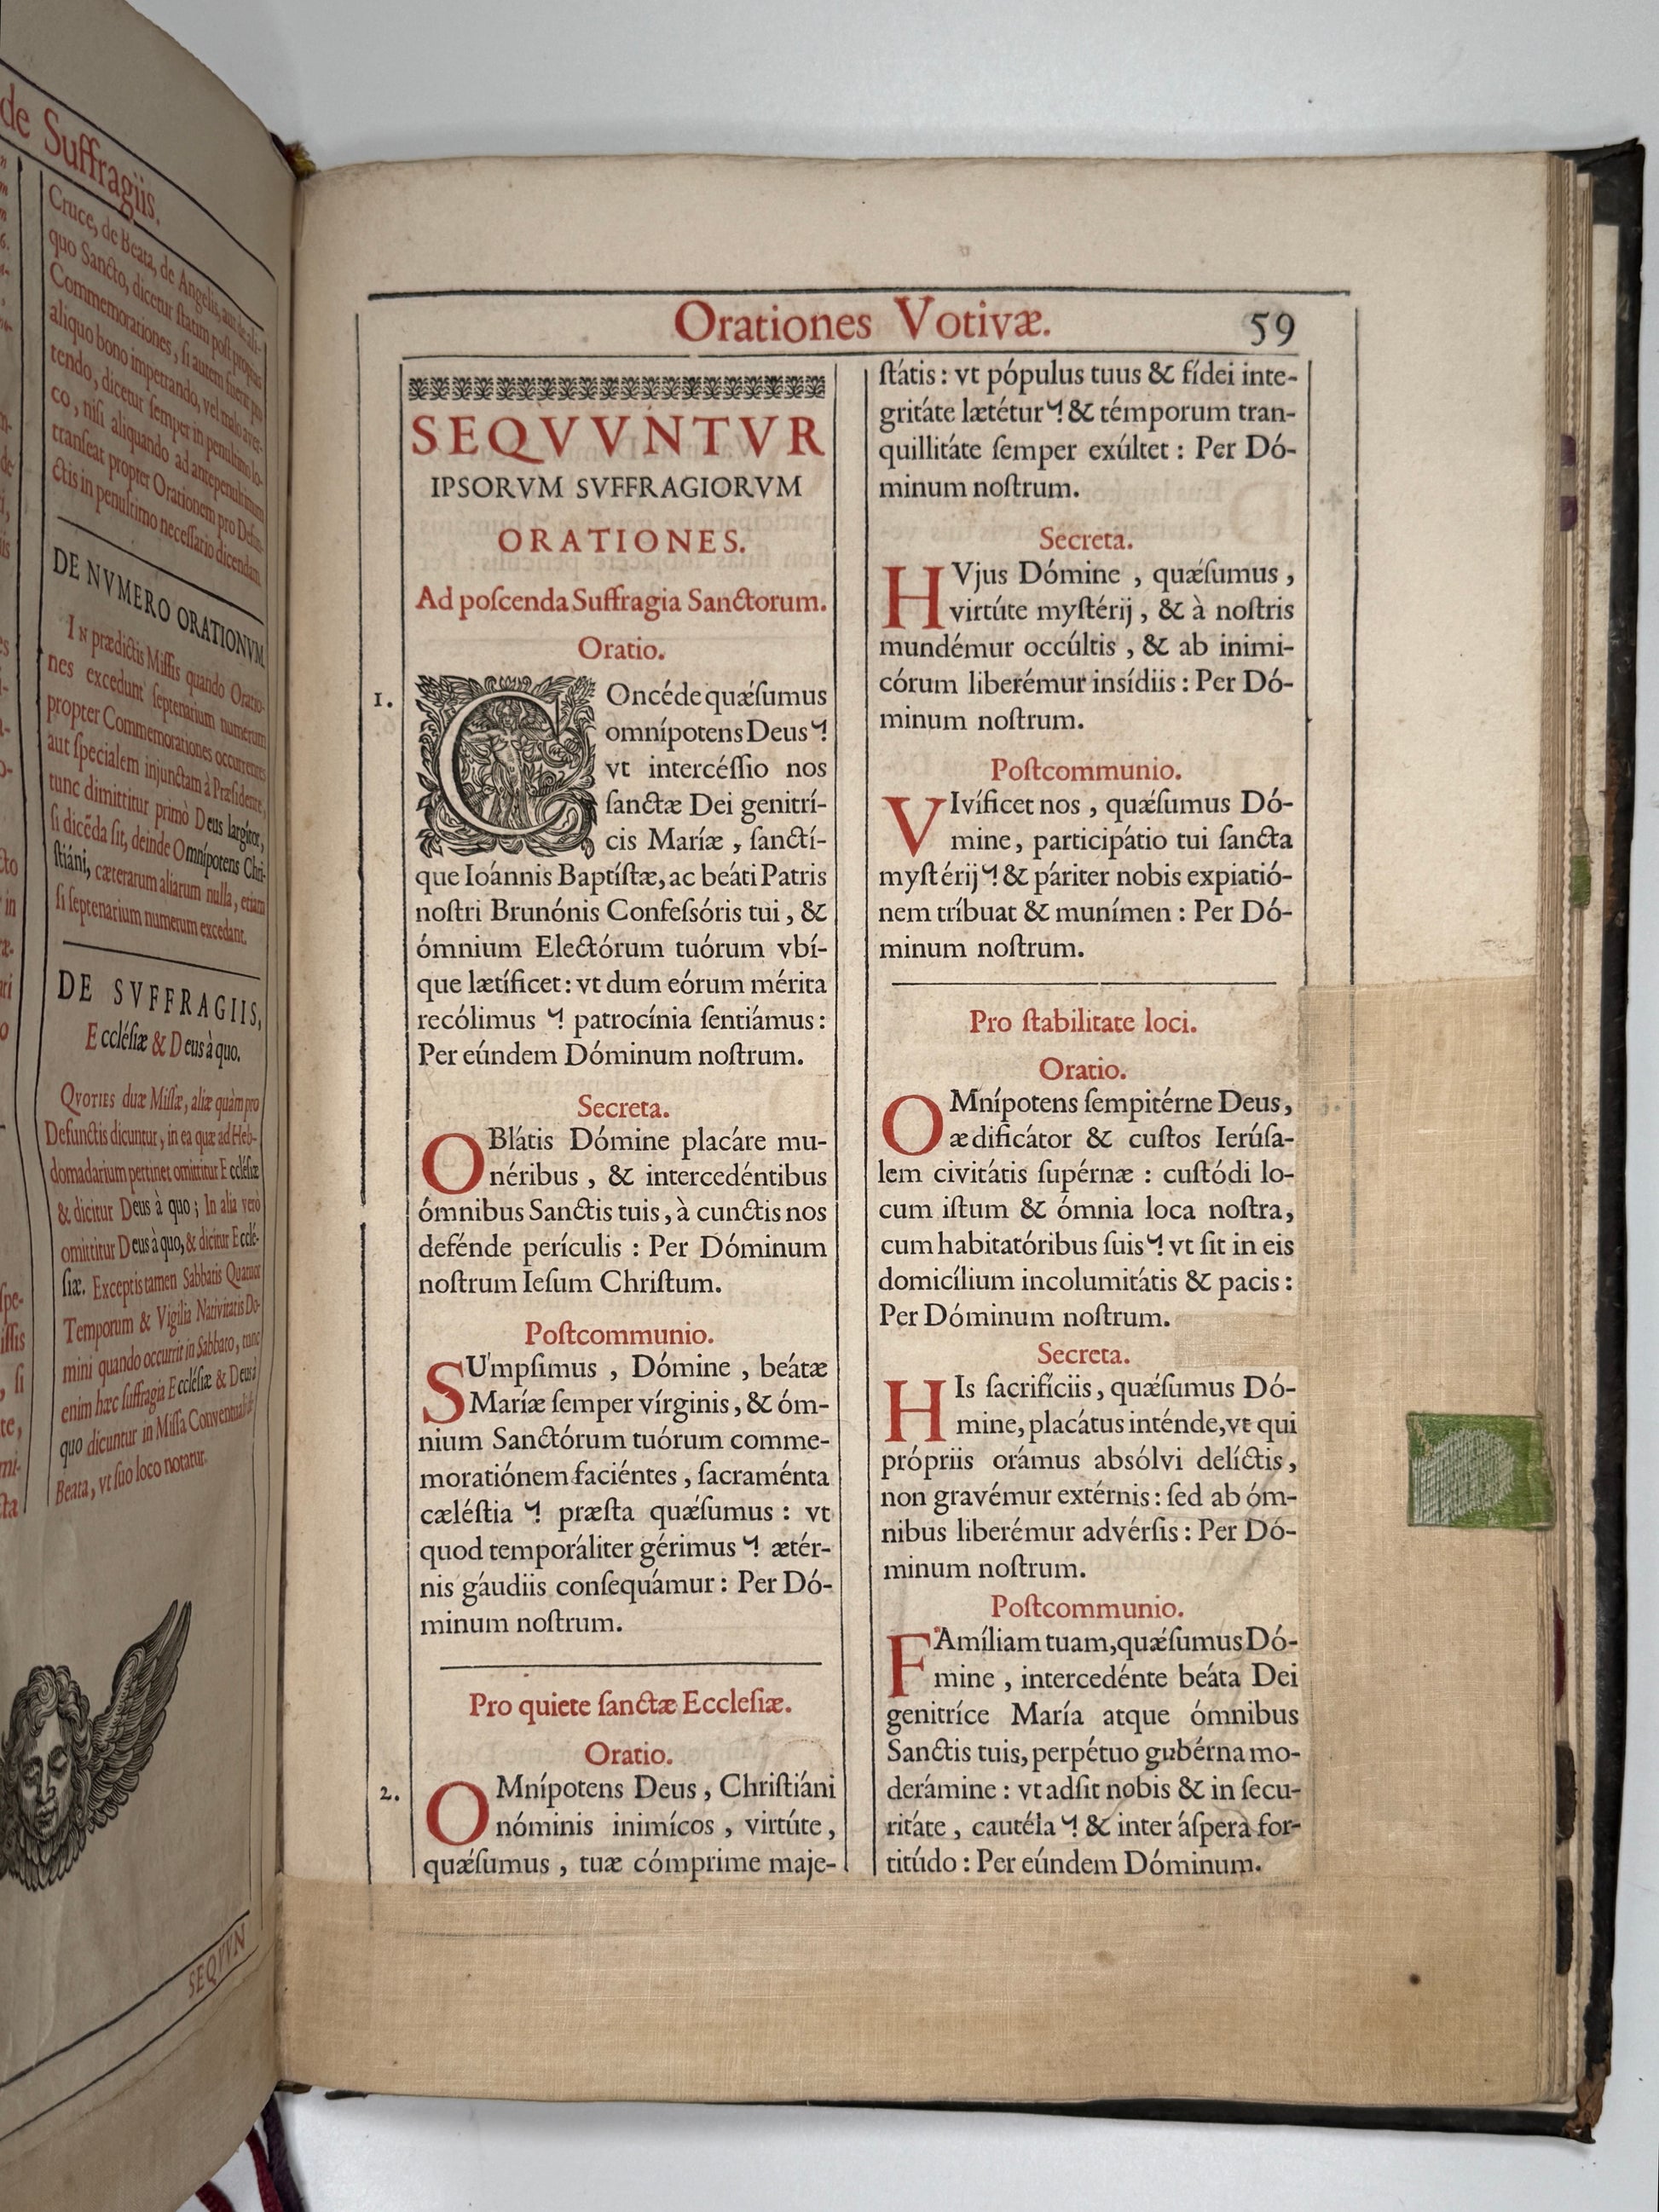 de Suffragiis.
Cruce, de Beata, de Angelis, aut de ali-
quo Sancto, dicetur statim post proprias
Commemorationes, si autem fuerit pro
aliquo bono impetrando, vel malo aver-
tendo, dicetur semper in penultimo lo-
co, nisi aliquando ad antepenultimum
transeat propter Orationem pro Defun-
ctis in penultimo necessario dicendam.
DE NVMERO ORATIONVM.
IN prædictis Missis quando Oratio-
nes excedunt septenarium numerum
propter Commemorationes occurrentes
aut specialem injunctam à Præsidente,
tunc dimittitur primò Deus largítor,
si dicēda sit, deinde Omnípotens Chri-
stiáni, cæterarum aliarum nulla, etiam
si septenarium numerum excedant.
DE SVFFRAGIIS,
Ecclésiæ & Deus à quo.
QVOTIES duæ Missæ, aliæ quàm pro
Defunctis dicuntur, in ea quæ ad Heb-
domadarium pertinet omittitur Ecclésiæ
& dicitur Deus à quo; In alia verò
omittitur Deus à quo, & dicitur Ecclé-
siæ. Exceptis tamen Sabbatis Quatuor
Temporum & Vigilia Nativitatis Do-
mini quando occurrit in Sabbato, tunc
enim hæc suffragia Ecclésiæ & Deus à
quo dicuntur in Missa Conventuali de
Beata, vt suo loco notatur.
SEQVVN
Orationes Votivæ. 59
SEQVVNTVR
IPSORVM SVFFRAGIORVM
ORATIONES.
Ad poscenda Suffragia Sanctorum.
Oratio.
1. COncéde quǽsumus
omnípotens Deus
vt intercéssio nos
sanctæ Dei genitrí-
cis Maríæ, sanctí-
que Ioánnis Baptístæ, ac beáti Patris
nostri Brunónis Confessóris tui, &
ómnium Electórum tuórum vbí-
que lætíficet: vt dum eórum mérita
recólimus patrocínia sentiámus:
Per eúndem Dóminum nostrum.
Secreta.
OBlátis Dómine placáre mu-
néribus, & intercedéntibus
ómnibus Sanctis tuis, à cunctis nos
defénde perículis: Per Dóminum
nostrum Iesum Christum.
Postcommunio.
SU'mpsimus, Dómine, beátæ
Maríæ semper vírginis, & óm-
nium Sanctórum tuórum comme-
moratiónem faciéntes, sacraménta
cæléstia præsta quǽsumus: vt
quod temporáliter gérimus ætér-
nis gáudiis consequámur: Per Dó-
minum nostrum.
Pro quiete sanctæ Ecclesiæ.
Oratio.
2. OMnípotens Deus, Christiáni
nóminis inimícos, virtúte,
quǽsumus, tuæ cómprime maje-
státis: vt pópulus tuus & fídei inte-
gritáte lætétur & témporum tran-
quillitáte semper exúltet: Per Dó-
minum nostrum.
Secreta.
HVjus Dómine, quǽsumus,
virtúte mystérij, & à nostris
mundémur occúltis, & ab inimi-
córum liberémur insídiis: Per Dó-
minum nostrum.
Postcommunio.
VIvíficet nos, quǽsumus Dó-
mine, participátio tui sancta
mystérij & páriter nobis expiatió-
nem tríbuat & munímen: Per Dó-
minum nostrum.
Pro stabilitate loci.
Oratio.
OMnípotens sempitérne Deus,
ædificátor & custos Ierúsa-
lem civitátis supérnæ: custódi lo-
cum istum & ómnia loca nostra,
cum habitatóribus suis vt sit in eis
domicílium incolumitátis & pacis:
Per Dóminum nostrum.
Secreta.
HIs sacrifíciis, quǽsumus Dó-
mine, placátus inténde, vt qui
própriis orámus absólvi delíctis,
non gravémur extérnis: sed ab óm-
nibus liberémur advérsis: Per Dó-
minum nostrum.
Postcommunio.
FAmíliam tuam, quǽsumus Dó-
mine, intercedénte beáta Dei
genitríce María atque ómnibus
Sanctis tuis, perpétuo gubérna mo-
derámine: vt adsit nobis & in secu-
ritáte, cautéla & inter áspera for-
titúdo: Per eúndem Dóminum.